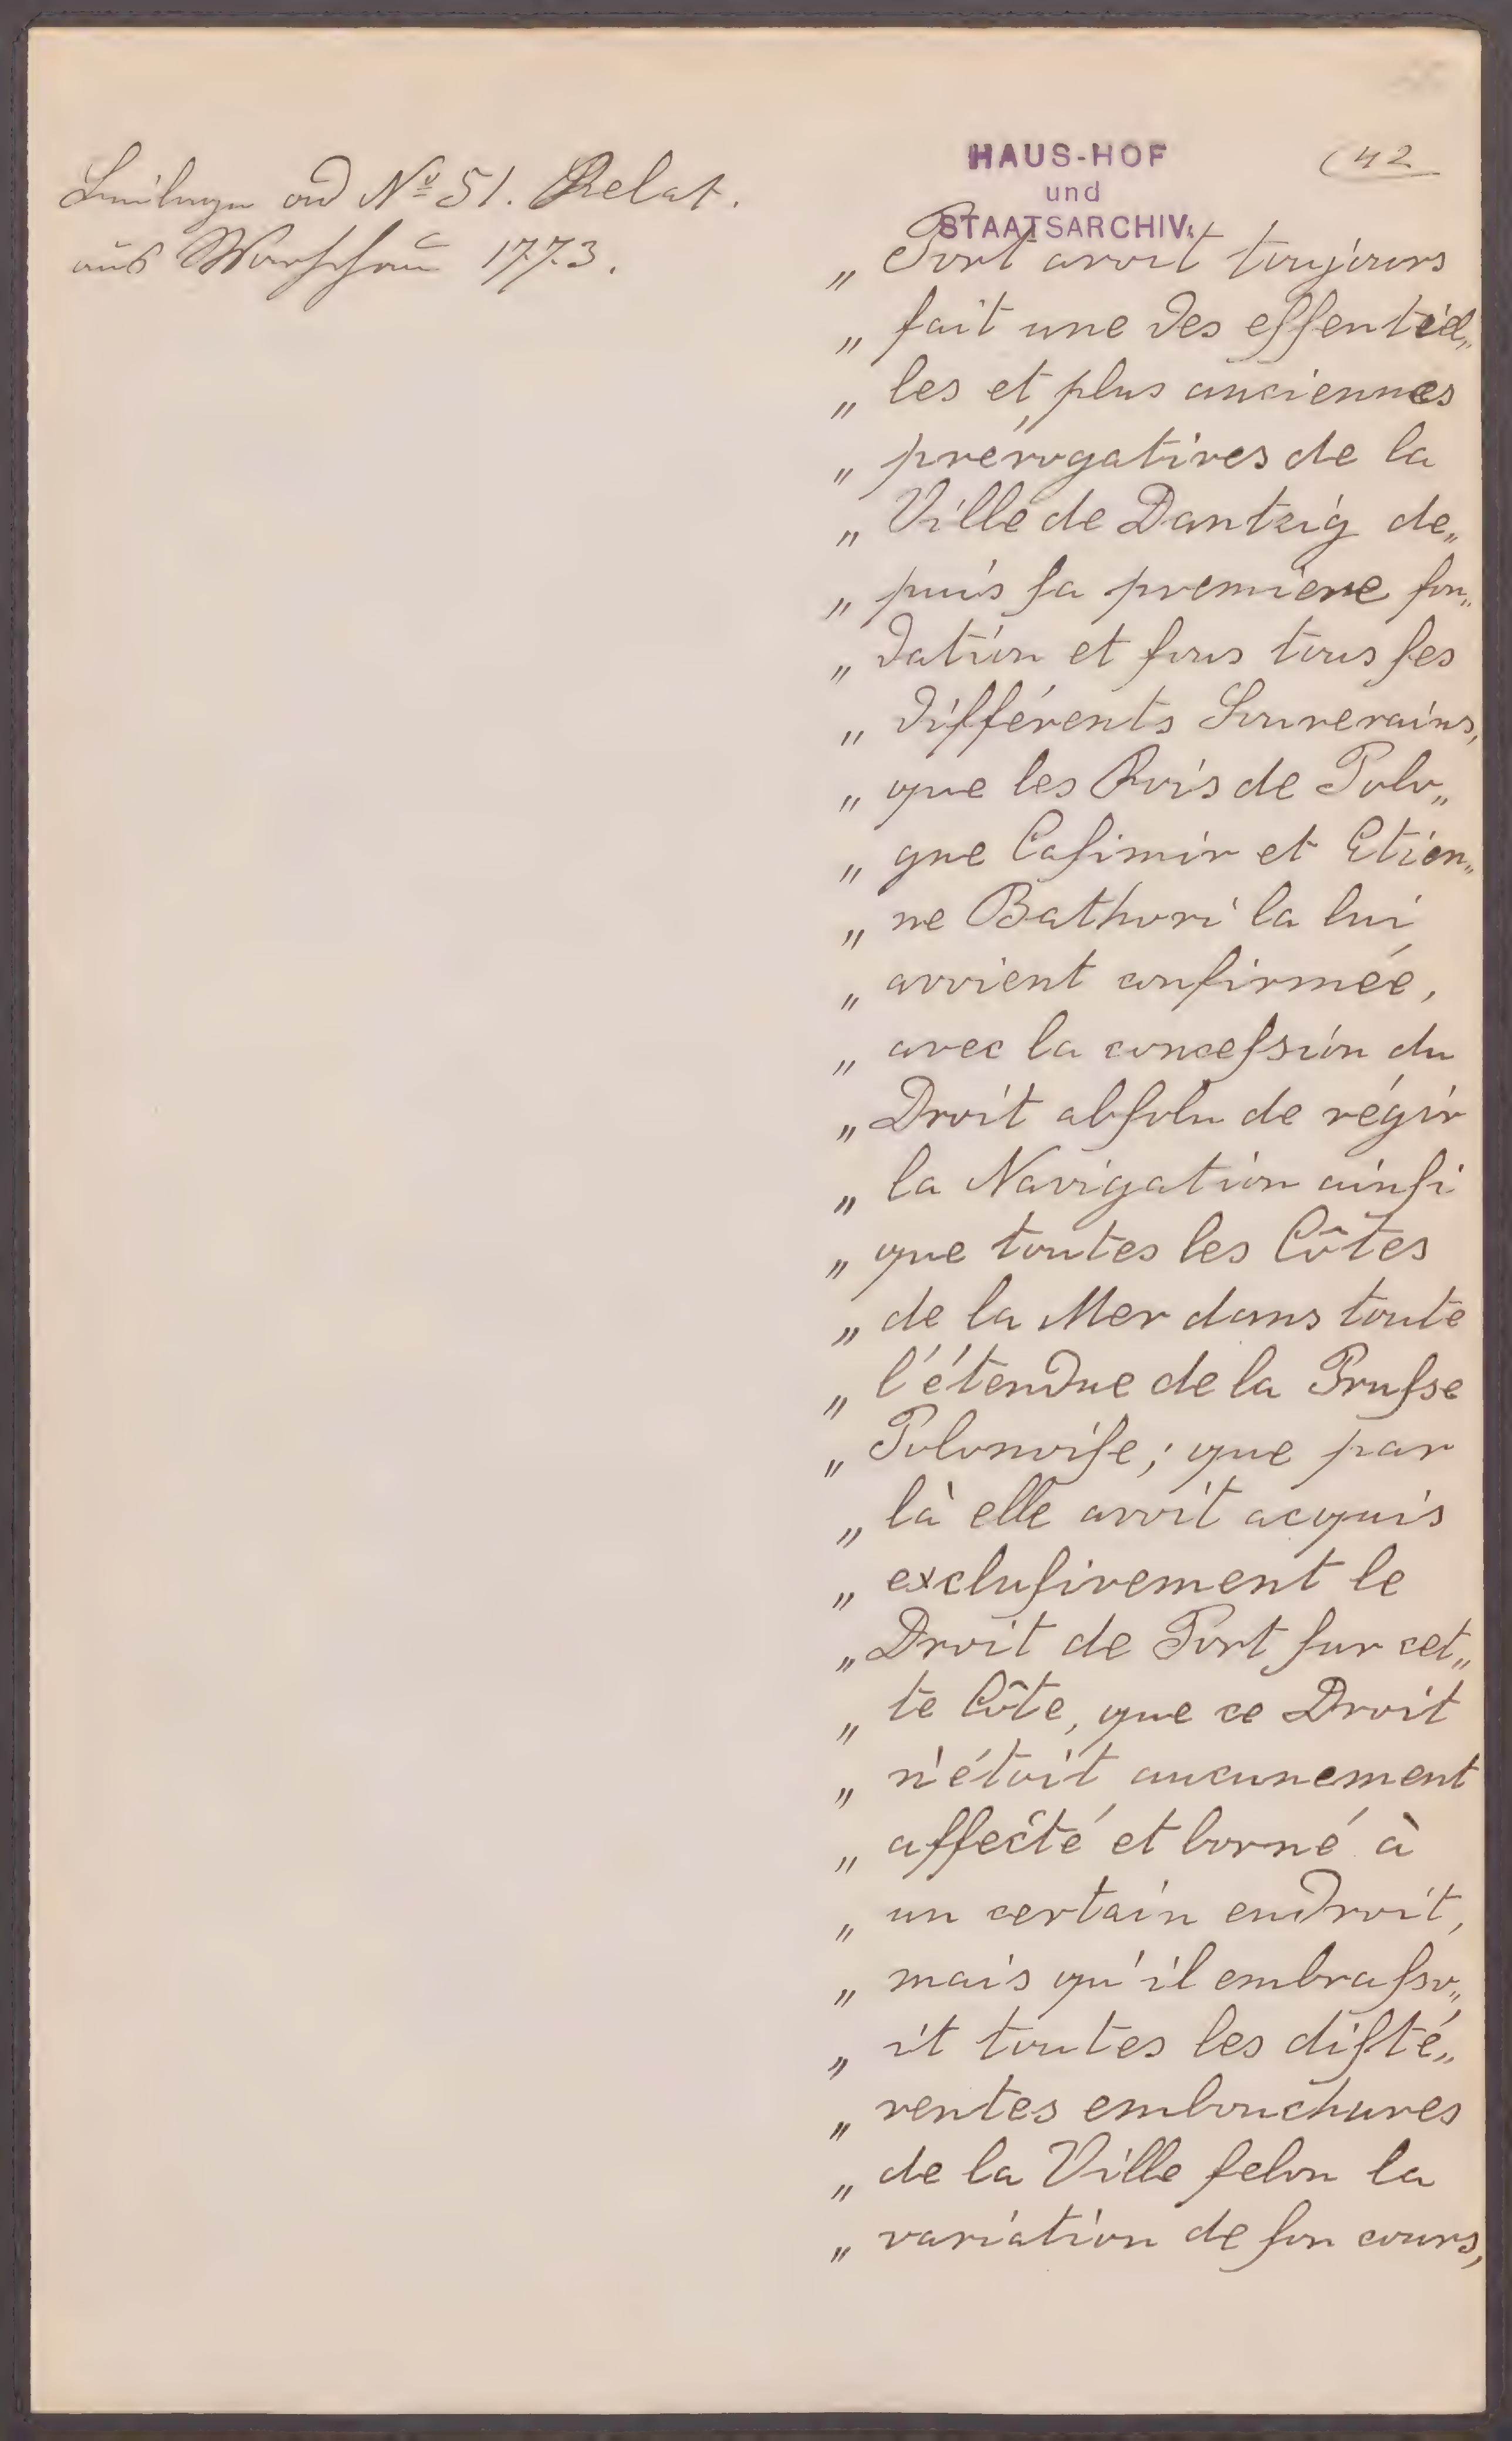 Beilagen ad Nº 51. Relat.
aus Warschau 1773.
HAUS-HOF
und
STAATSARCHIV.
42
„ Port avoit toujours
„ fait une des eſſentiel„
„ les et plus anciennes
„ prerogatives de la
„ Ville de Dantzig de„
„ puis ſa premiere fon„
„ dation et ſous tous ſes
„ différents Souverains,
„ que les Rois de Polo„
„ gne Caſimir et Etien„
„ ne Bathori la lui
„ avoient confirmée,
„ avec la conceſsion du
„ Droit abſolu de régir
„ la Navigation ainſi
„ que toutes les Côtes
„ de la Mer dans toute
„ l'étendue de la Pruſse
„ Polonoiſe; que par
„ là elle avoit acquis
„ excluſivement le
„ Droit de Port ſur cet„
„ te Côte, que ce Droit
„ n'étoit aucunement
„ affecté et borné à
„ un certain endroit,
„ mais qu'il embraſso„
„ it toutes les difté„
„ rentes embouchures
„ de la Ville ſelon la
„ variation de ſon cours,